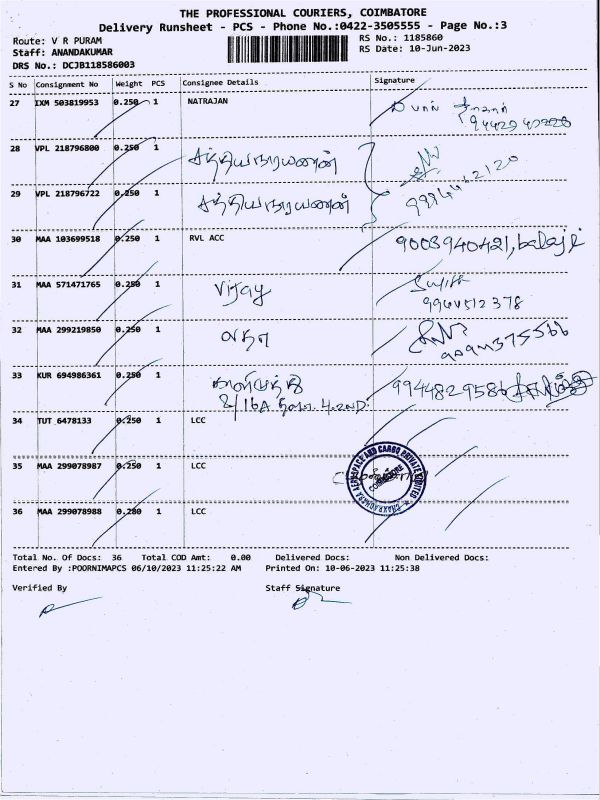 THE PROFESSIONAL COURIERS, COIMBATORE
Delivery Runsheet - PCS - Phone No.:0422-3505555 - Page No.:3
Route: V R PURAM
RS No.: 1185860
Staff: ANANDAKUMAR
RS Date: 10-Jun-2023
DRS No.: DCJB118586003
S No Consignment No Weight PCS Consignee Details Signature
27 IXM 503819953 0.250 1 NATRAJAN
28 VPL 218796800 0.250 1 சத்தியநாராயணன்
29 VPL 218796722 0.250 1 சத்தியநாராயணன்
30 MAA 103699518 0.250 1 RVL ACC 9003940421, balaji
31 MAA 571471765 0.250 1 Vijay
32 MAA 299219850 0.250 1
33 KUR 694986361 0.250 1 9944829586
34 TUT 6478133 0.250 1 LCC
35 MAA 299078987 0.250 1 LCC
36 MAA 299078988 0.280 1 LCC
COIMBATORE
Total No. Of Docs: 36 Total COD Amt: 0.00 Delivered Docs: Non Delivered Docs:
Entered By :POORNIMAPCS 06/10/2023 11:25:22 AM Printed On: 10-06-2023 11:25:38
Verified By Staff Signature